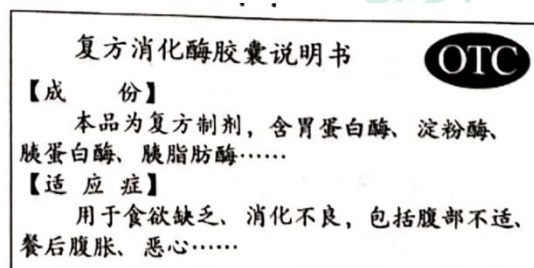 复方消化酶胶囊说明书
OTC
【成 份】
本品为复方制剂，含胃蛋白酶、淀粉酶、
胰蛋白酶、胰脂肪酶……
【适 应 症】
用于食欲缺乏、消化不良，包括腹部不适、
餐后腹胀、恶心……